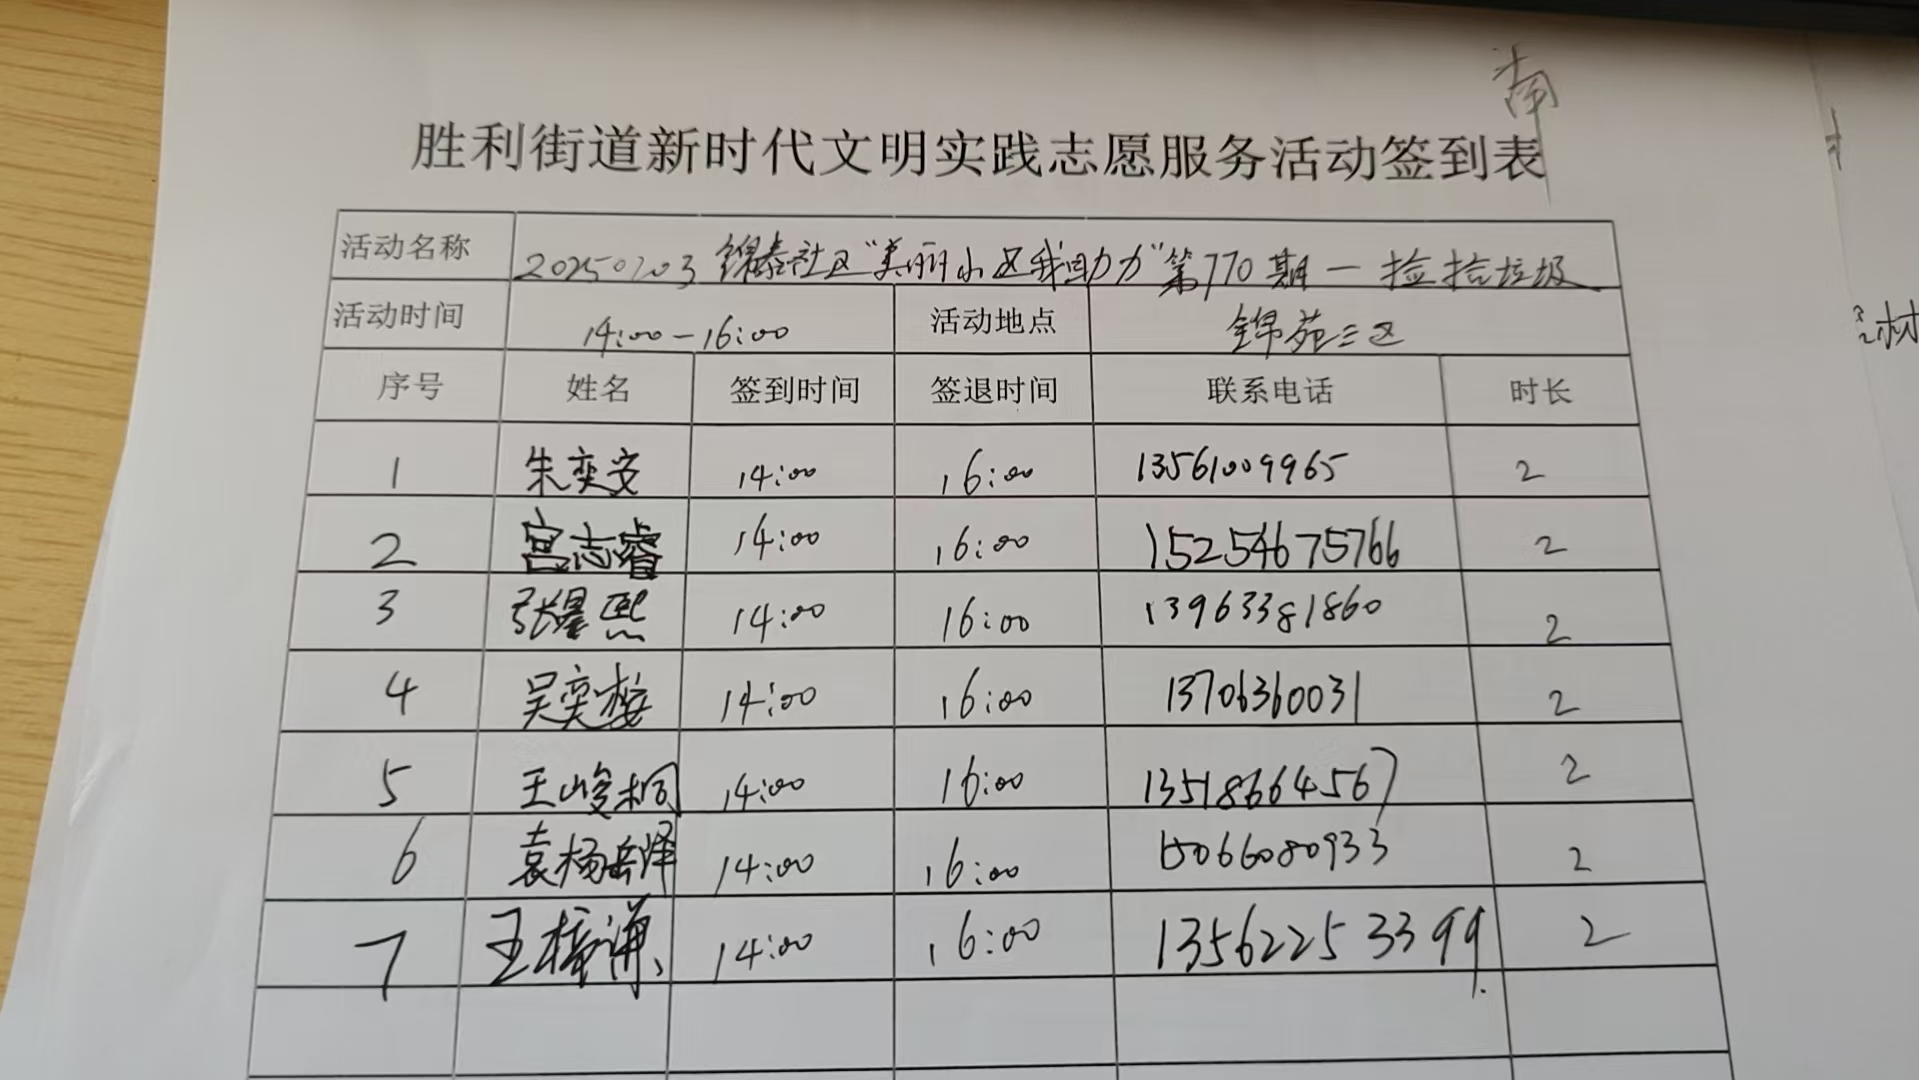 南
胜利街道新时代文明实践志愿服务活动签到表
活动名称 20250703 锦泰社区"美丽小区我助力"第770期—捡拾垃圾
活动时间 14:00-16:00 活动地点 锦苑三区
序号 姓名 签到时间 签退时间 联系电话 时长
1 朱奕安 14:00 16:00 13561009965 2
2 宫志睿 14:00 16:00 15254675766 2
3 张墨熙 14:00 16:00 13963381860 2
4 吴奕桉 14:00 16:00 13706360031 2
5 王峻桐 14:00 16:00 13518664567 2
6 袁杨岳泽 14:00 16:00 15066080933 2
7 王梓谦 14:00 16:00 13562253399 2
材